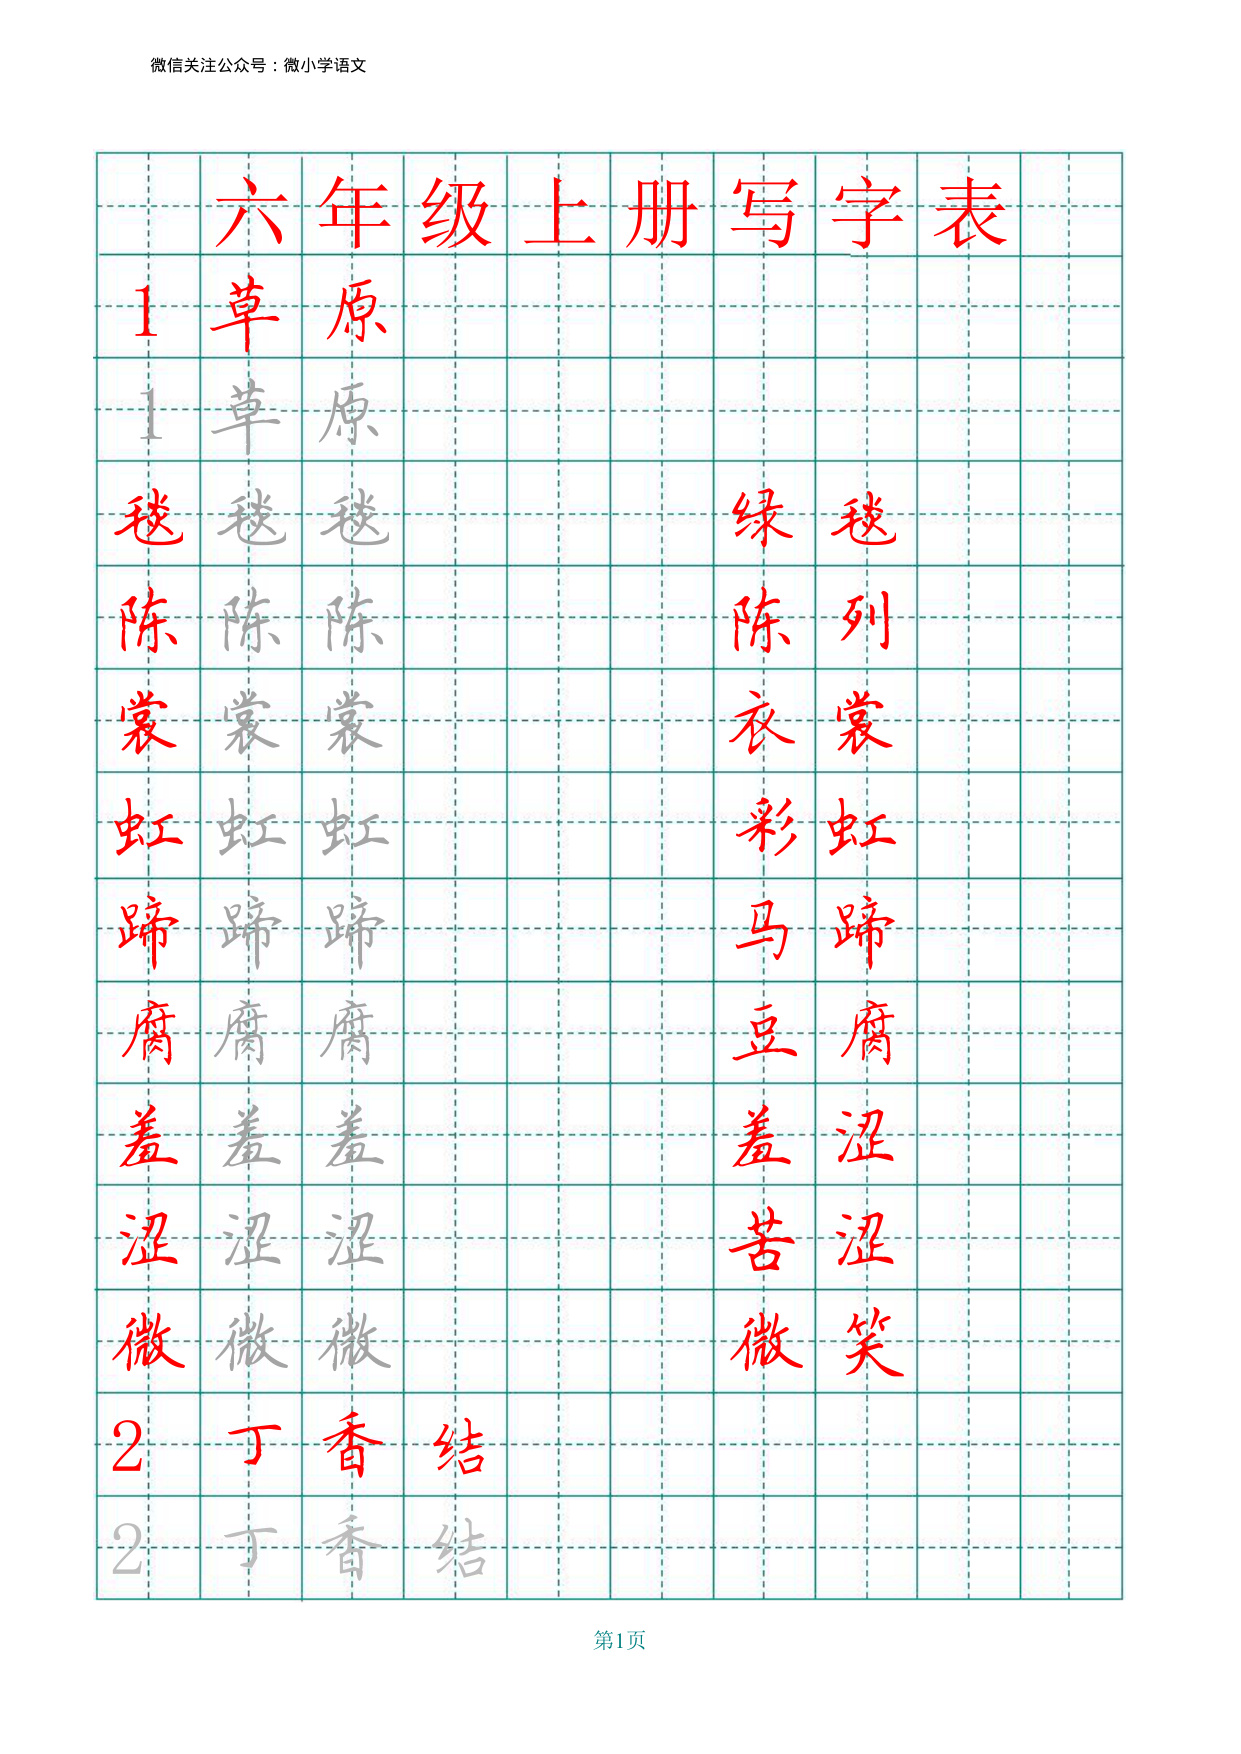 微信关注公众号：微小学语文
六年级上册写字表
1 草原
1 草原
毯 毯 毯 绿毯
陈 陈 陈 陈列
裳 裳 裳 衣裳
虹 虹 虹 彩虹
蹄 蹄 蹄 马蹄
腐 腐 腐 豆腐
羞 羞 羞 羞涩
涩 涩 涩 苦涩
微 微 微 微笑
2 丁香结
2 丁香结
第1页